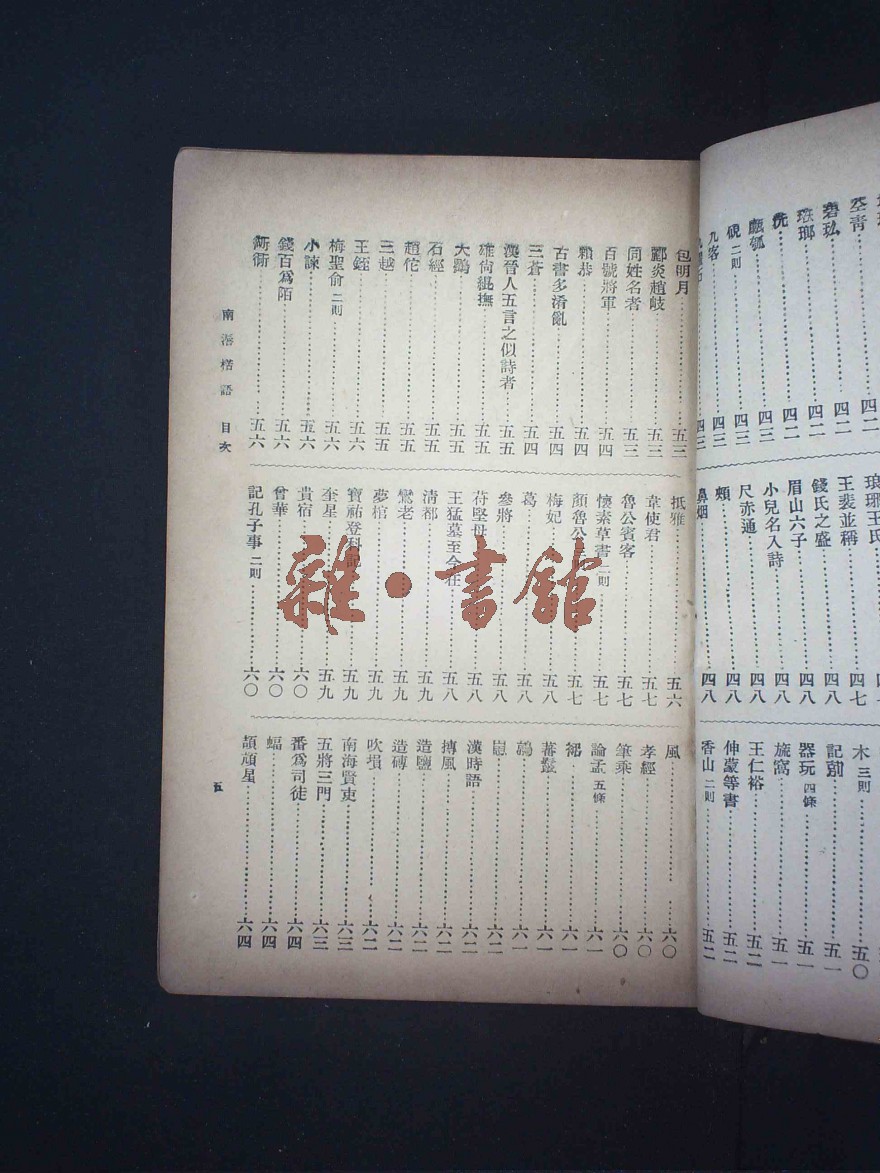 空青……四二
四二
珐瑯……四二
四二
四三
硯 二則……四三
九客……四三
四三
琅琊王氏
王裴並稱……四七
錢氏之盛……四八
眉山六子……四八
小兒名入詩……四八
尺赤通……四八
頰……四八
鼻烟……四八
木 三則……五〇
記別……五一
器玩 四條……五一
旋窩……五一
王仁裕……五二
伸蒙等書……五二
香山 二則……五二
包明月……五三
酈炎趙岐……五三
同姓名者……五三
百號將軍……五四
賴恭……五四
古書多淆亂……五四
三蒼……五四
漢晉人五言之似詩者……五五
雄尙鯤撫……五五
大鸛……五五
石經……五五
趙佗……五五
三越……五五
王銍……五六
梅聖俞 二則……五六
小諫……五六
錢百爲陌……五六
衚衕……五六
抵雅……五六
韋使君……五七
魯公賓客……五七
懷素草書 二則……五七
顏魯公……五七
梅妃……五八
葛……五八
參將……五八
苻堅母……五八
王猛墓至今在……五八
清都……五九
鸞老……五九
夢棺……五九
寶祐登科記……五九
奎星……五九
貴宿……六〇
曾華……六〇
記孔子事 二則……六〇
風……六〇
孝經……六〇
筆乘……六〇
論孟 五條……六一
六一
蕃鬘……六一
鴣……六一
六二
漢時語……六二
摶風……六二
造鹽……六二
造磚……六二
吹塤……六二
南海賢吏……六三
五將三門……六三
番爲司徒……六四
蝠……六四
頡頏星……六四
南漘楛語 目次
五
雜·書館